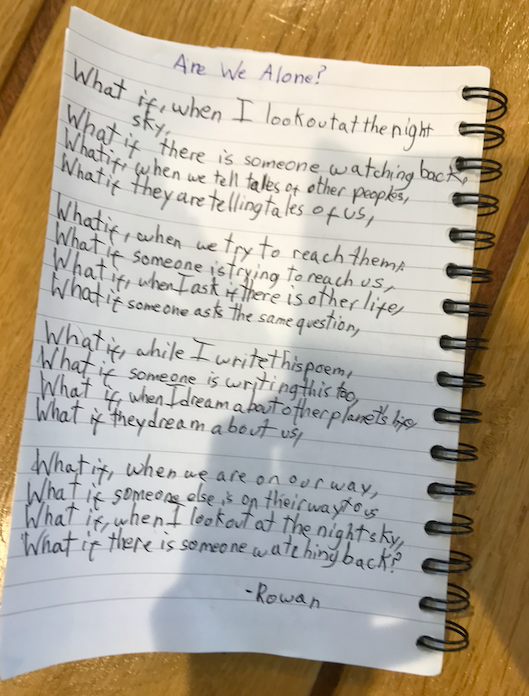 Are We Alone?
What if, when I look out at the night
sky,
What if there is someone watching back,
What if, when we tell tales of other peoples,
What if they are telling tales of us,
What if, when we try to reach them,
What if someone is trying to reach us,
What if, when I ask if there is other life,
What if someone asks the same question,
What if, while I write this poem,
What if someone is writing this too,
What if, when I dream about other planet's life,
What if they dream about us,
What if, when we are on our way,
What if someone else is on their way to us
What if, when I look out at the night sky,
What if there is someone watching back?
-Rowan